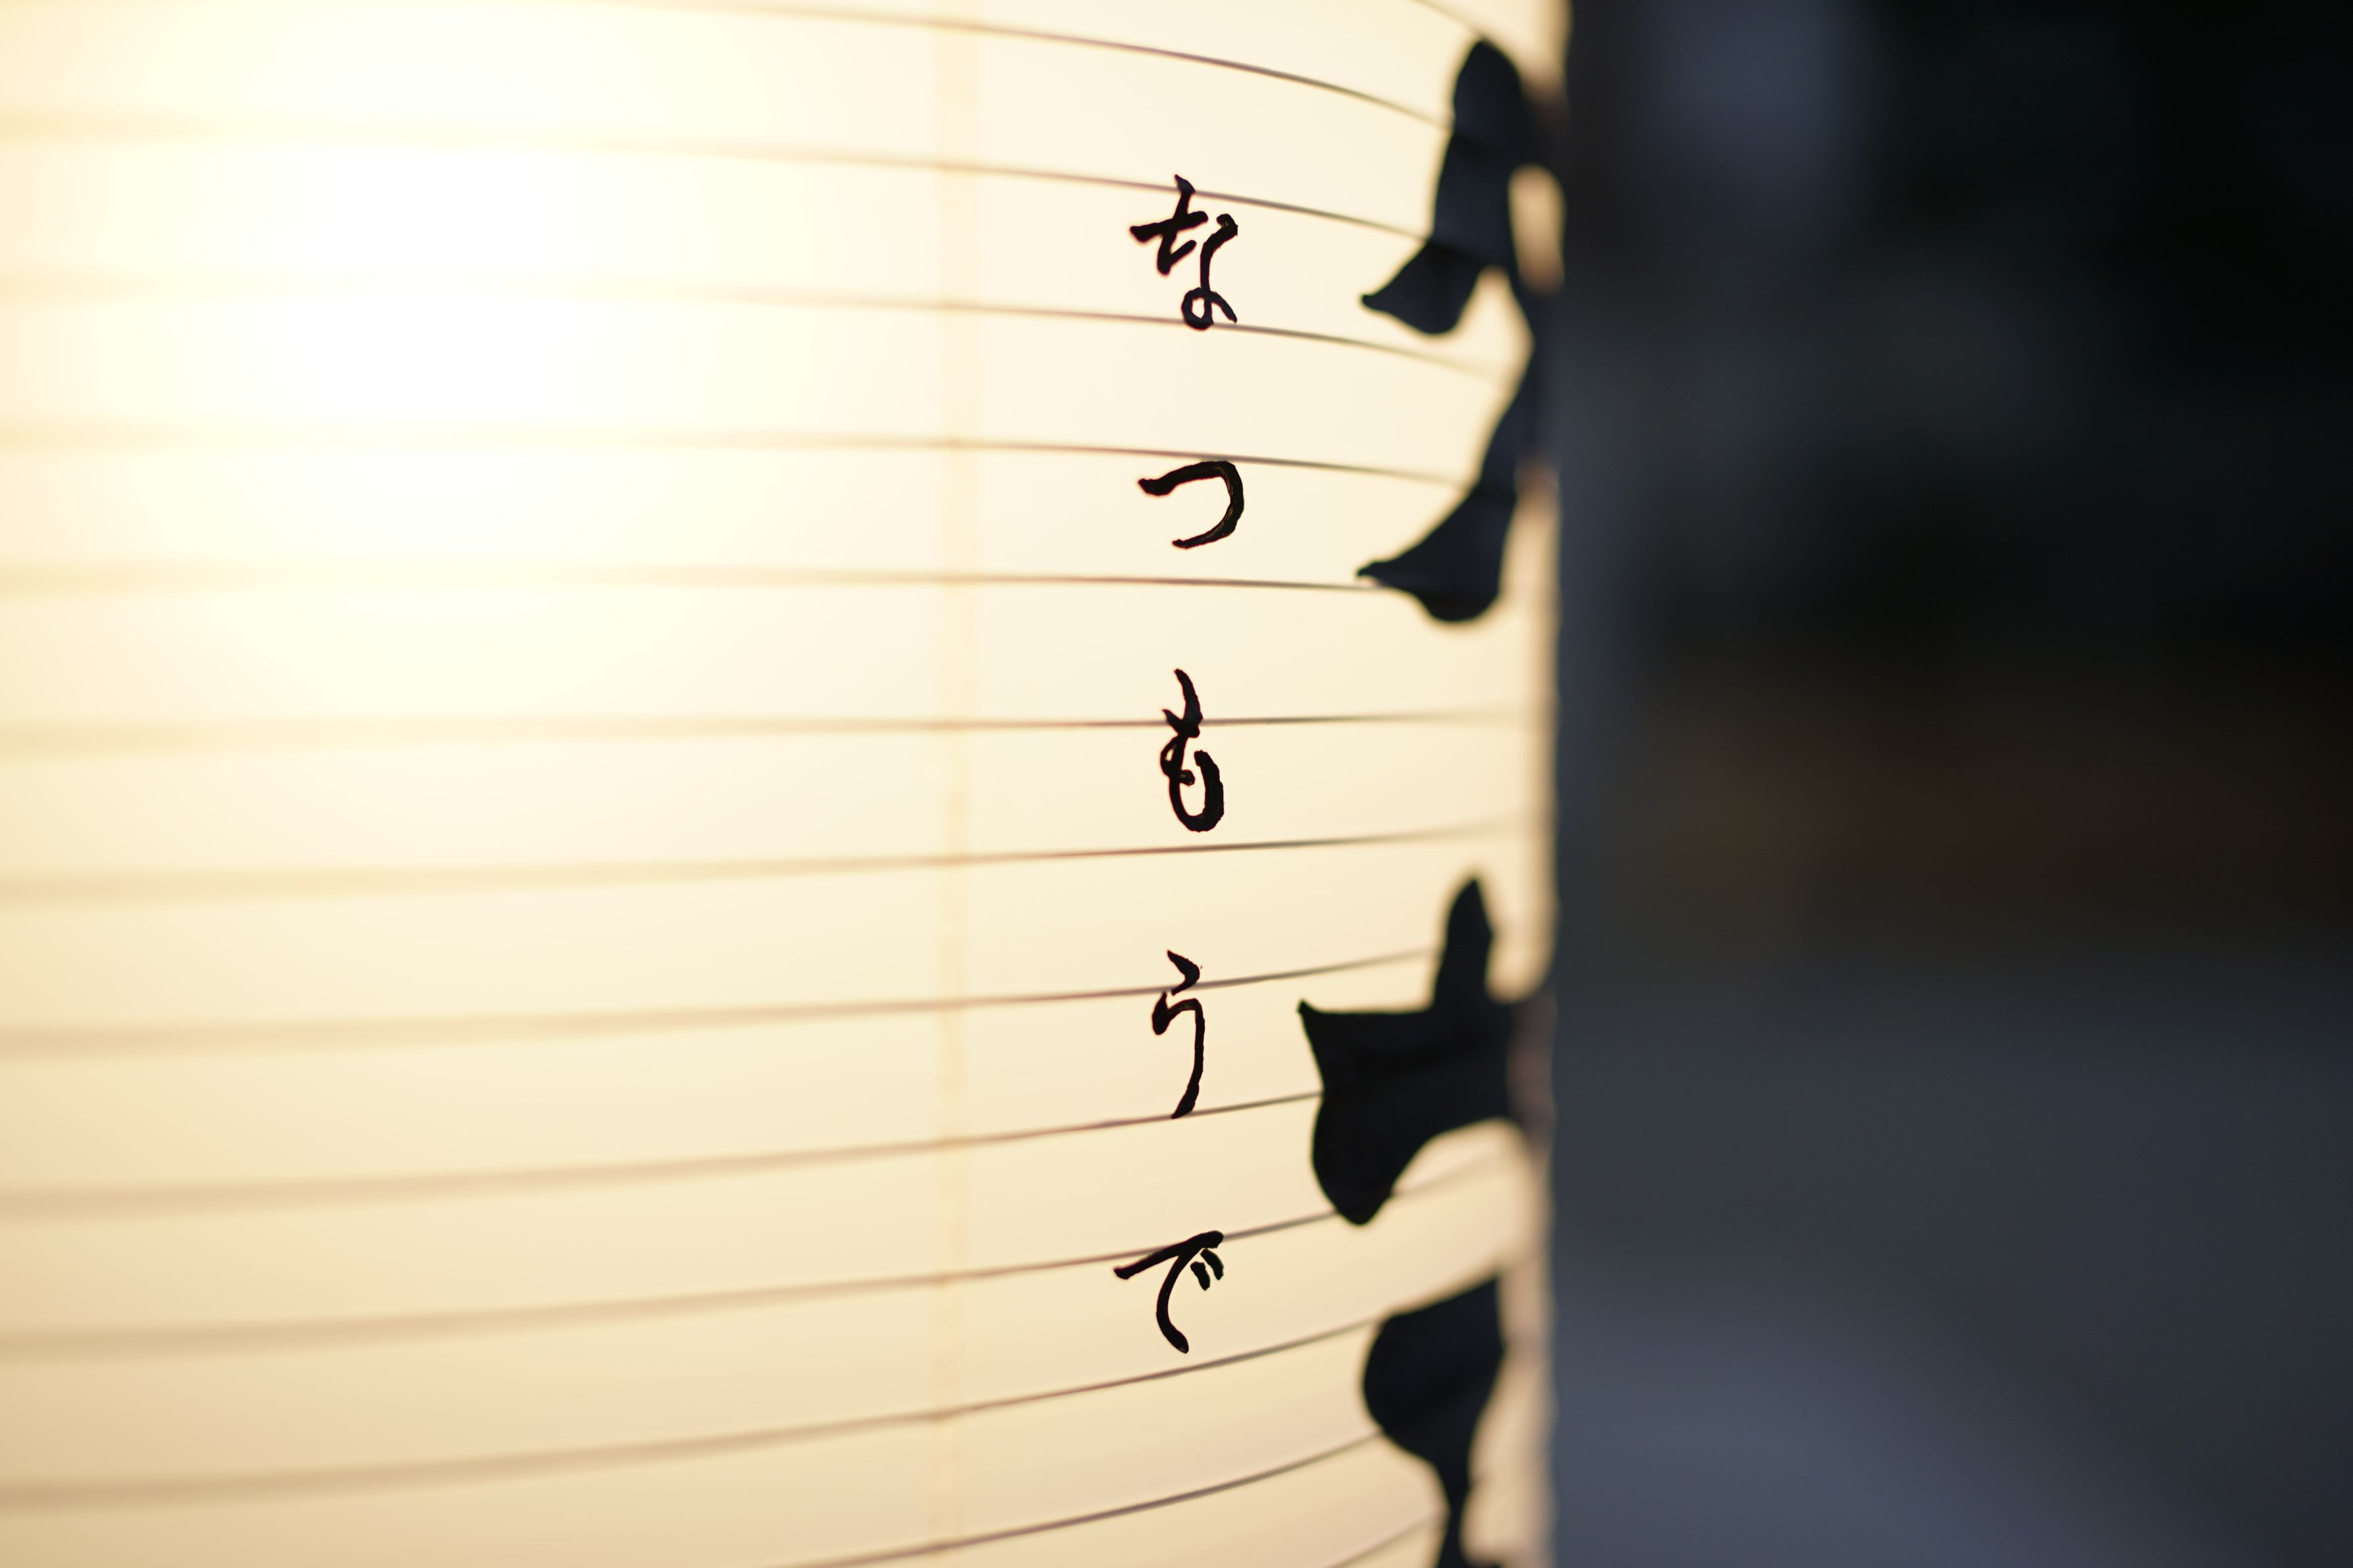 なつもうで